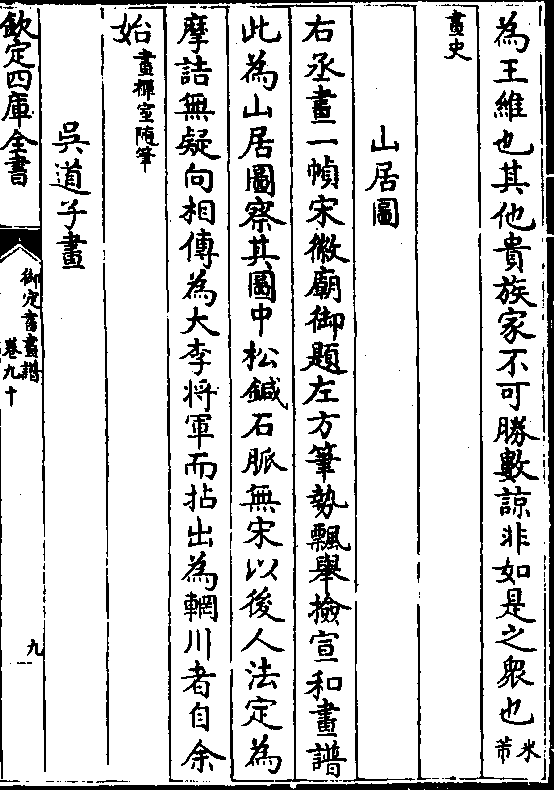 為王維也其他貴族家不可勝數諒非如是之衆也米芾
畫史
山居圖
右丞畫一幀宋徽廟御題左方筆勢飄舉撿宣和畫譜
此為山居圖察其圖中松鍼石脈無宋以後人法定為
摩詰無疑向相傳為大李將軍而拈出為輞川者自余
始畫禪室隨筆
吳道子畫
欽定四庫全書
御定書畫譜
卷九十
九